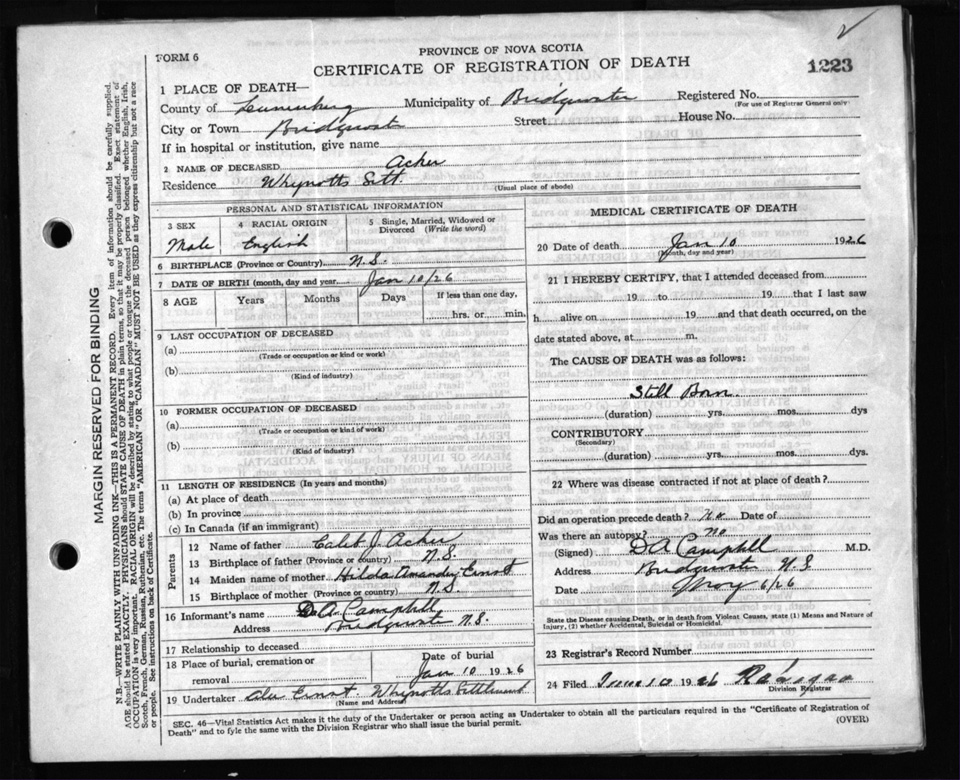 FORM 6
PROVINCE OF NOVA SCOTIA
CERTIFICATE OF REGISTRATION OF DEATH
1223
1 PLACE OF DEATH—
County of Lunenburg Municipality of Bridgewater Registered No.
(For use of Registrar General only)
City or Town Bridgewater Street House No.
If in hospital or institution, give name
2 NAME OF DECEASED Acker
Residence Whynotts Sett.
(Usual place of abode)
PERSONAL AND STATISTICAL INFORMATION
3 SEX 4 RACIAL ORIGIN 5 Single, Married, Widowed or Divorced (Write the word)
Male English
6 BIRTHPLACE (Province or Country) N.S.
7 DATE OF BIRTH (month, day and year) Jan 10/26
8 AGE Years Months Days If less than one day,
hrs. or min.
9 LAST OCCUPATION OF DECEASED
(a)
(Trade or occupation or kind or work)
(b)
(Kind of industry)
10 FORMER OCCUPATION OF DECEASED
(a)
(Trade or occupation or kind of work)
(b)
(Kind of industry)
11 LENGTH OF RESIDENCE (In years and months)
(a) At place of death
(b) In province
(c) In Canada (if an immigrant)
Parents
12 Name of father Caleb J. Acker
13 Birthplace of father (Province or country) N.S.
14 Maiden name of mother Hilda Ernst
15 Birthplace of mother (Province or country) N.S.
16 Informant's name D.A. Campbell
Address Bridgewater N.S.
17 Relationship to deceased
18 Place of burial, cremation or removal
Date of burial
Jan 10 1926
19 Undertaker Ernst Whynotts Settlement
(Name and Address)
MEDICAL CERTIFICATE OF DEATH
20 Date of death Jan 10 1926
(Month, day and year)
21 I HEREBY CERTIFY, that I attended deceased from
19 to 19 that I last saw
h alive on 19 and that death occurred, on the
date stated above, at m.
The CAUSE OF DEATH was as follows:
Still Born
(duration) yrs. mos. dys
CONTRIBUTORY
(Secondary)
(duration) yrs. mos. dys.
22 Where was disease contracted if not at place of death?
Did an operation precede death? No Date of
Was there an autopsy? No
(Signed) D A Campbell M.D.
Address Bridgewater N.S.
Date 6/26
State the Disease causing Death, or in death from Violent Causes, state (1) Means and Nature of
Injury, (2) whether Accidental, Suicidal or Homicidal.
23 Registrar's Record Number
24 Filed 1926
Division Registrar
SEC. 46—Vital Statistics Act makes it the duty of the Undertaker or person acting as Undertaker to obtain all the particulars required in the "Certificate of Registration of
Death" and to fyle the same with the Division Registrar who shall issue the burial permit.
(OVER)
MARGIN RESERVED FOR BINDING
N.B.—WRITE PLAINLY WITH UNFADING INK—THIS IS A PERMANENT RECORD. Every item of information should be carefully supplied.
AGE should be stated EXACTLY. PHYSICIANS should STATE CAUSE OF DEATH in plain terms, so that it may be properly classified. Exact statement of
OCCUPATION is very important. RACIAL ORIGIN will be described by stating to what people or tongue the deceased person belonged whether English, Irish,
Scotch, French, German, Russian, Ruthenian, etc. The terms "AMERICAN" OR "CANADIAN" MUST NOT BE USED as they express citizenship but not a race
or people. See instructions on back of Certificate.